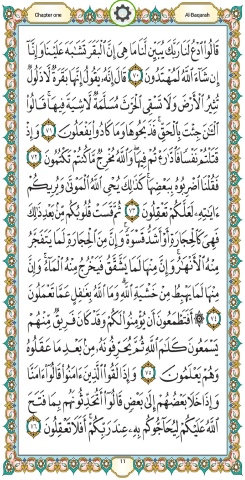 Chapter one
Al-Baqarah
قَالُوا۟ ٱدْعُ لَنَا رَبَّكَ يُبَيِّن لَّنَا مَا هِىَ إِنَّ ٱلْبَقَرَ تَشَٰبَهَ عَلَيْنَا وَإِنَّآ
إِن شَآءَ ٱللَّهُ لَمُهْتَدُونَ ٧٠ قَالَ إِنَّهُۥ يَقُولُ إِنَّهَا بَقَرَةٌ لَّا ذَلُولٌ
تُثِيرُ ٱلْأَرْضَ وَلَا تَسْقِى ٱلْحَرْثَ مُسَلَّمَةٌ لَّا شِيَةَ فِيهَا ۚ قَالُوا۟
ٱلْـَٰٔنَ جِئْتَ بِٱلْحَقِّ ۚ فَذَبَحُوهَا وَمَا كَادُوا۟ يَفْعَلُونَ ٧١ وَإِذْ
قَتَلْتُمْ نَفْسًا فَٱدَّٰرَْٰٔتُمْ فِيهَا ۖ وَٱللَّهُ مُخْرِجٌ مَّا كُنتُمْ تَكْتُمُونَ ٧٢
فَقُلْنَا ٱضْرِبُوهُ بِبَعْضِهَا ۚ كَذَٰلِكَ يُحْىِ ٱللَّهُ ٱلْمَوْتَىٰ وَيُرِيكُمْ
ءَايَٰتِهِۦ لَعَلَّكُمْ تَعْقِلُونَ ٧٣ ثُمَّ قَسَتْ قُلُوبُكُم مِّنۢ بَعْدِ ذَٰلِكَ
فَهِىَ كَٱلْحِجَارَةِ أَوْ أَشَدُّ قَسْوَةً ۚ وَإِنَّ مِنَ ٱلْحِجَارَةِ لَمَا يَتَفَجَّرُ
مِنْهُ ٱلْأَنْهَٰرُ ۚ وَإِنَّ مِنْهَا لَمَا يَشَّقَّقُ فَيَخْرُجُ مِنْهُ ٱلْمَآءُ ۚ وَإِنَّ
مِنْهَا لَمَا يَهْبِطُ مِنْ خَشْيَةِ ٱللَّهِ ۗ وَمَا ٱللَّهُ بِغَٰفِلٍ عَمَّا تَعْمَلُونَ
٧٤ ۞ أَفَتَطْمَعُونَ أَن يُؤْمِنُوا۟ لَكُمْ وَقَدْ كَانَ فَرِيقٌ مِّنْهُمْ
يَسْمَعُونَ كَلَٰمَ ٱللَّهِ ثُمَّ يُحَرِّفُونَهُۥ مِنۢ بَعْدِ مَا عَقَلُوهُ
وَهُمْ يَعْلَمُونَ ٧٥ وَإِذَا لَقُوا۟ ٱلَّذِينَ ءَامَنُوا۟ قَالُوٓا۟ ءَامَنَّا
وَإِذَا خَلَا بَعْضُهُمْ إِلَىٰ بَعْضٍ قَالُوٓا۟ أَتُحَدِّثُونَهُم بِمَا فَتَحَ
ٱللَّهُ عَلَيْكُمْ لِيُحَآجُّوكُم بِهِۦ عِندَ رَبِّكُمْ ۚ أَفَلَا تَعْقِلُونَ ٧٦
١١